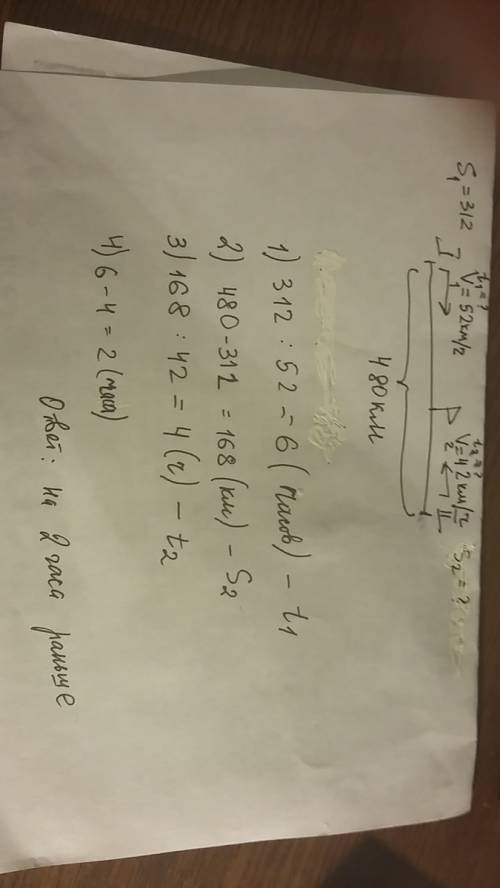 S₁ = 312 t₁ = ? V₁ = 52 км/г t₂ = ? V₂ = 42 км/г S₂ = ?
I II
480 км
1) 312 : 52 = 6 (часов) – t₁
2) 480 - 312 = 168 (км) – S₂
3) 168 : 42 = 4 (ч) – t₂
4) 6 - 4 = 2 (часа)
Ответ: на 2 часа раньше